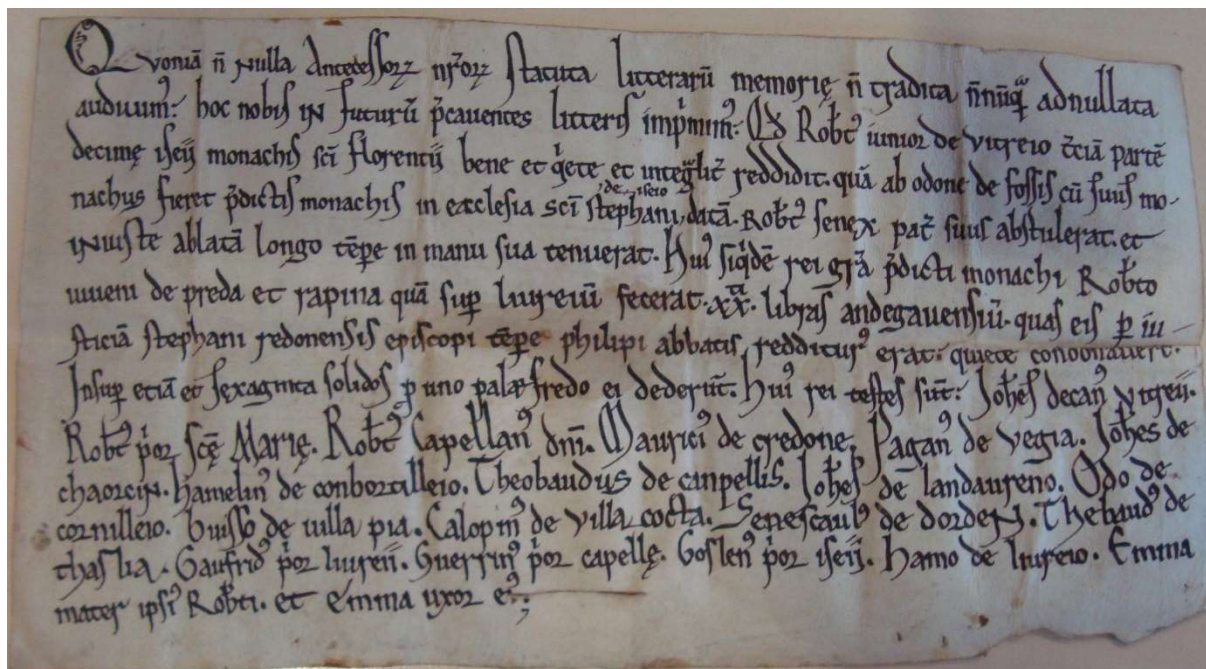 Qvoniā n̄ nulla Antecessorꝝ nr̄orꝝ statuta litterarū memorię n̄ tradita n̄nūq̄ adnullata
audiuim᷒: hoc nobis in futurū p̄cauentes litteris imp̍mim᷒. Qd̄ Rob̄t᷒ iunior de vitreio t̄ciā partē
decimę iseij monachis sc̄i florentij bene et q̍ete et inteḡlit̄ reddidit. quā ab odone de fossis cū suus mo-
nachus fieret p̄dictis monachis in ecclesia sc̄i stephani de iseio datā. Rob̄t᷒ senex pat̄ suus abstulerat. et
iniuste ablatā longo tēpe in manu sua tenuerat. Hui᷒ siq̍dē rei gr̄a p̄dicti monachi Rob̄to
iuueni de preda et rapina quā suꝑ liureiū fecerat. xx. libras andegauensiū. quas eis ꝑ iu-
sticiā stephani redonensis episcopi tēpe philipi abbatis redditur᷒ erat: quiete condonauert̄.
Insuꝑ etiā et sexaginta solidos p uno palæfredo ei dederūt. Hui᷒ rei testes sūt: Joh̄es decan᷒ vitreij.
Rob̄t᷒ p̍or sc̄ę Marię. Rob̄t᷒ Capellan᷒ dn̄i. Maurici᷒ de credone. Pagan᷒ de vegia. Joh̄es de
chaorcin. hamelin᷒ de conbortilleio. Theobaudus de canpellis. Joh̄es de landaureno. Odo de
cornilleio. buisso de uilla pia. Calopin᷒ de villa cocta. Senescaul᷒ de dorden. Thebaud᷒ de
thaslia. Gaufrid᷒ p̍or liureij. Guerrin᷒ p̍or capellę. Goslen᷒ p̍or iseij. hamo de liureio. Emma
mater ipsi᷒ Rob̄ti. et Emma uxor ei᷒;